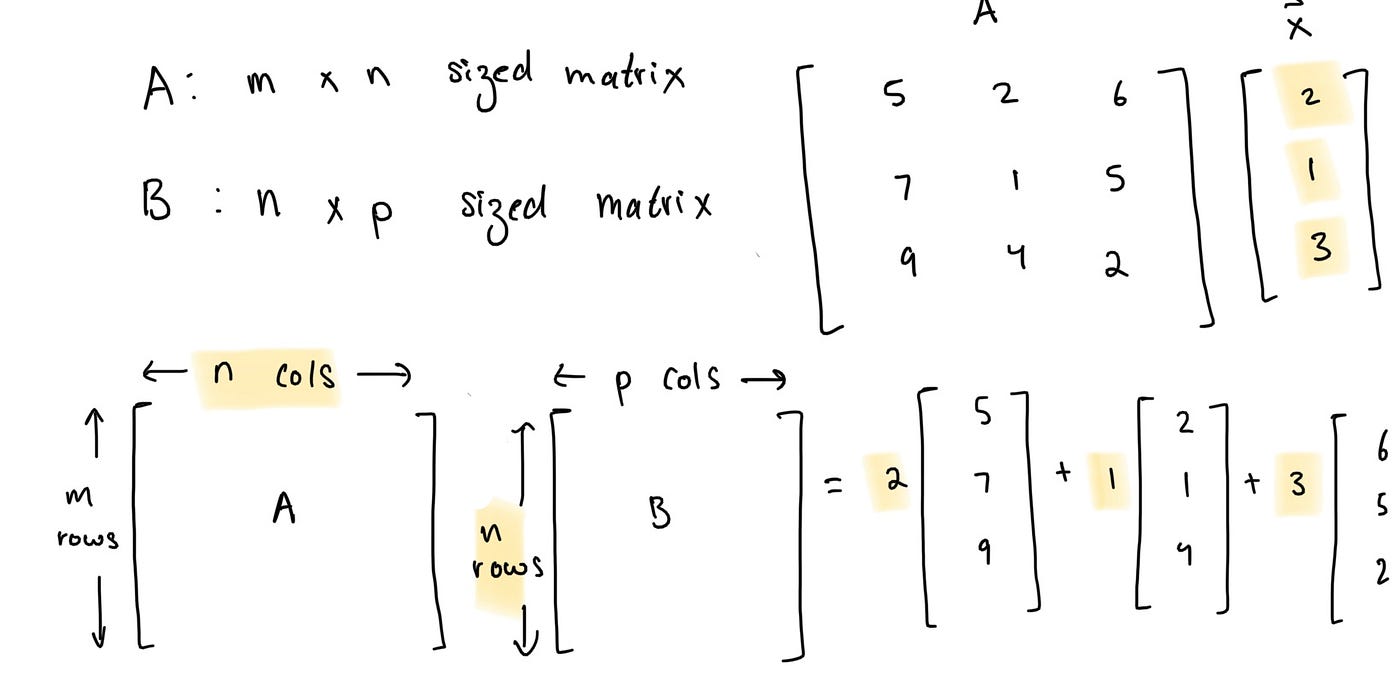 A: m x n sized matrix
B : n x p sized matrix
A x
5 2 6 2
7 1 5 1
9 4 2 3
← n cols → ← p cols →
↑ m rows ↓ A ↑ n rows ↓ B
= 2 [5 7 9] + 1 [2 1 4] + 3 [6 5 2